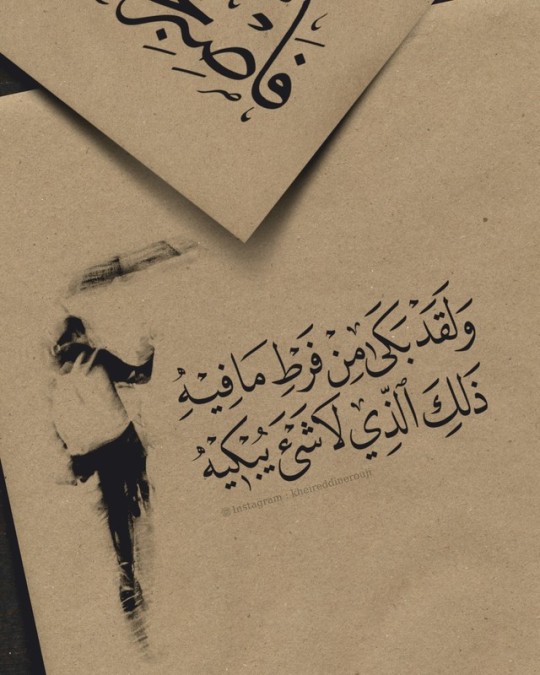 فَاصْبِرْ
وَلَقَدْ بَكَىٰ مِنْ فَرَطِ مَا فِيْهِ
ذَلِكَ ٱلَّذِّي لَا شَيْءَ يُبْكِيْهُ
@ Instagram : kheireddinerouji